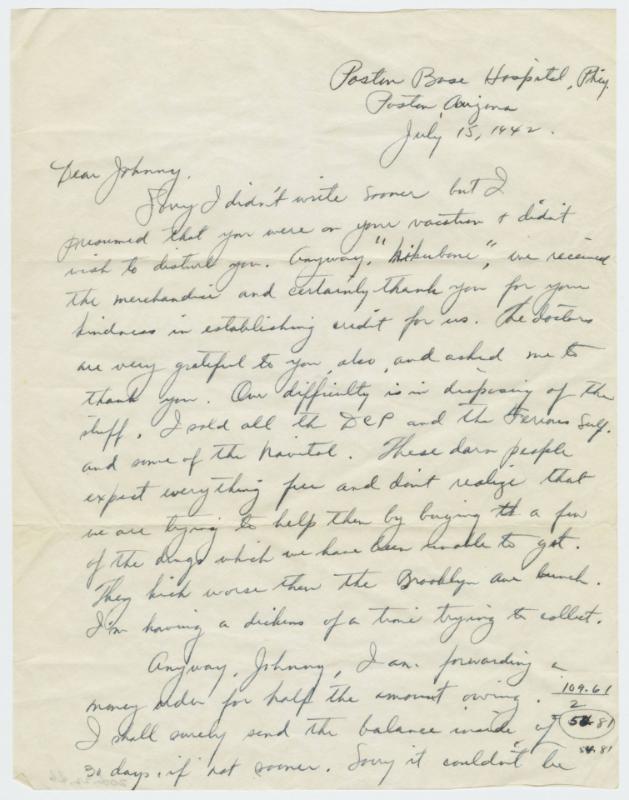 Poston Base Hospital, Phcy.
Poston, Arizona
July 15, 1942.
Dear Johnny,
Sorry I didn't write sooner but I
presumed that you were on your vacation & didn't
wish to disturb you. Anyway, we received
the merchandise and certainly thank you for your
kindness in establishing credit for us. The doctors
are very grateful to you, also, and asked me to
thank you. Our difficulty is in disposing of the
stuff. I sold all the DCP and the Ferrous Sulf.
and some of the Navitol. These darn people
expect everything free and don't realize that
we are trying to help them by buying a few
of the drugs which we have been unable to get.
They kick worse then the Brooklyn Ave bunch.
I'm having a dickens of a time trying to collect.
Anyway, Johnny, I am forwarding a
money order for half the amount owing. 109.61
2
I shall surely send the balance inside of 54.81
54.81
30 days, if not sooner. Sorry it couldn't be